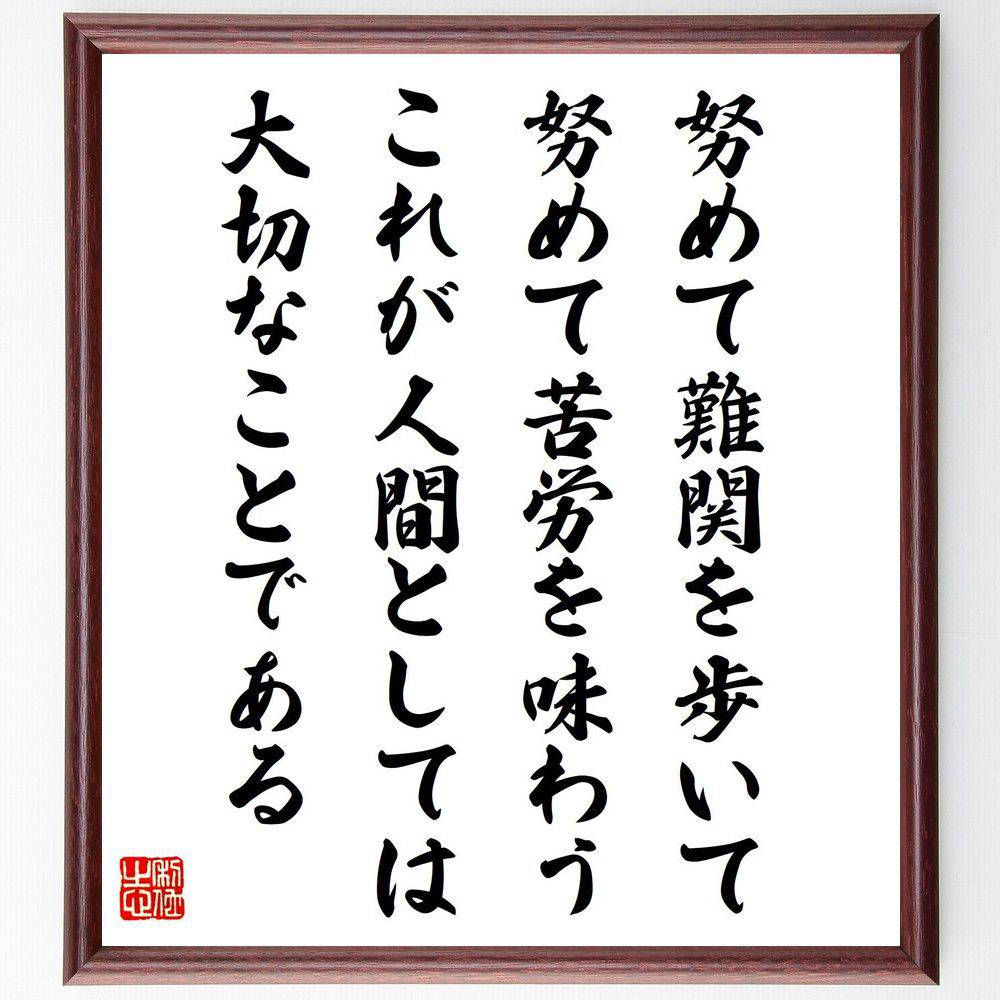 努めて難関を歩いて
努めて苦労を味わう
これが人間としては
大切なことである